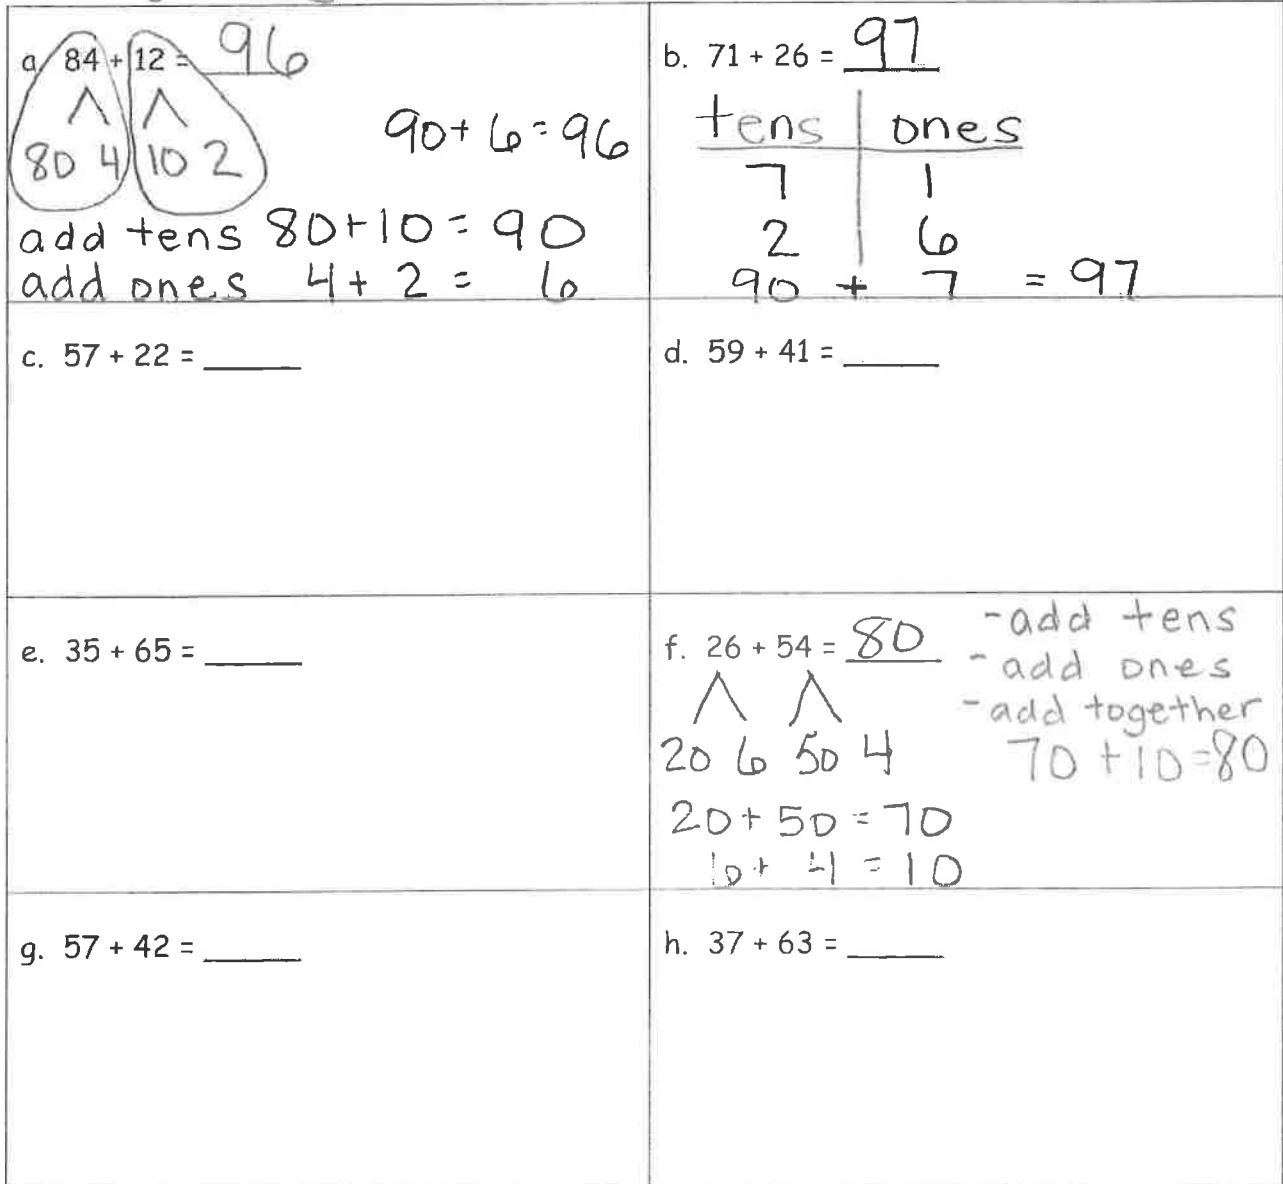 a. 84 + 12 = 96
80 4 10 2
90 + 6 = 96
add tens 80 + 10 = 90
add ones 4 + 2 = 6
b. 71 + 26 = 97
tens ones
7 1
2 6
90 + 7 = 97
c. 57 + 22 = _____
d. 59 + 41 = _____
e. 35 + 65 = _____
f. 26 + 54 = 80
20 6 50 4
20 + 50 = 70
6 + 4 = 10
- add tens
- add ones
- add together
70 + 10 = 80
g. 57 + 42 = _____
h. 37 + 63 = _____